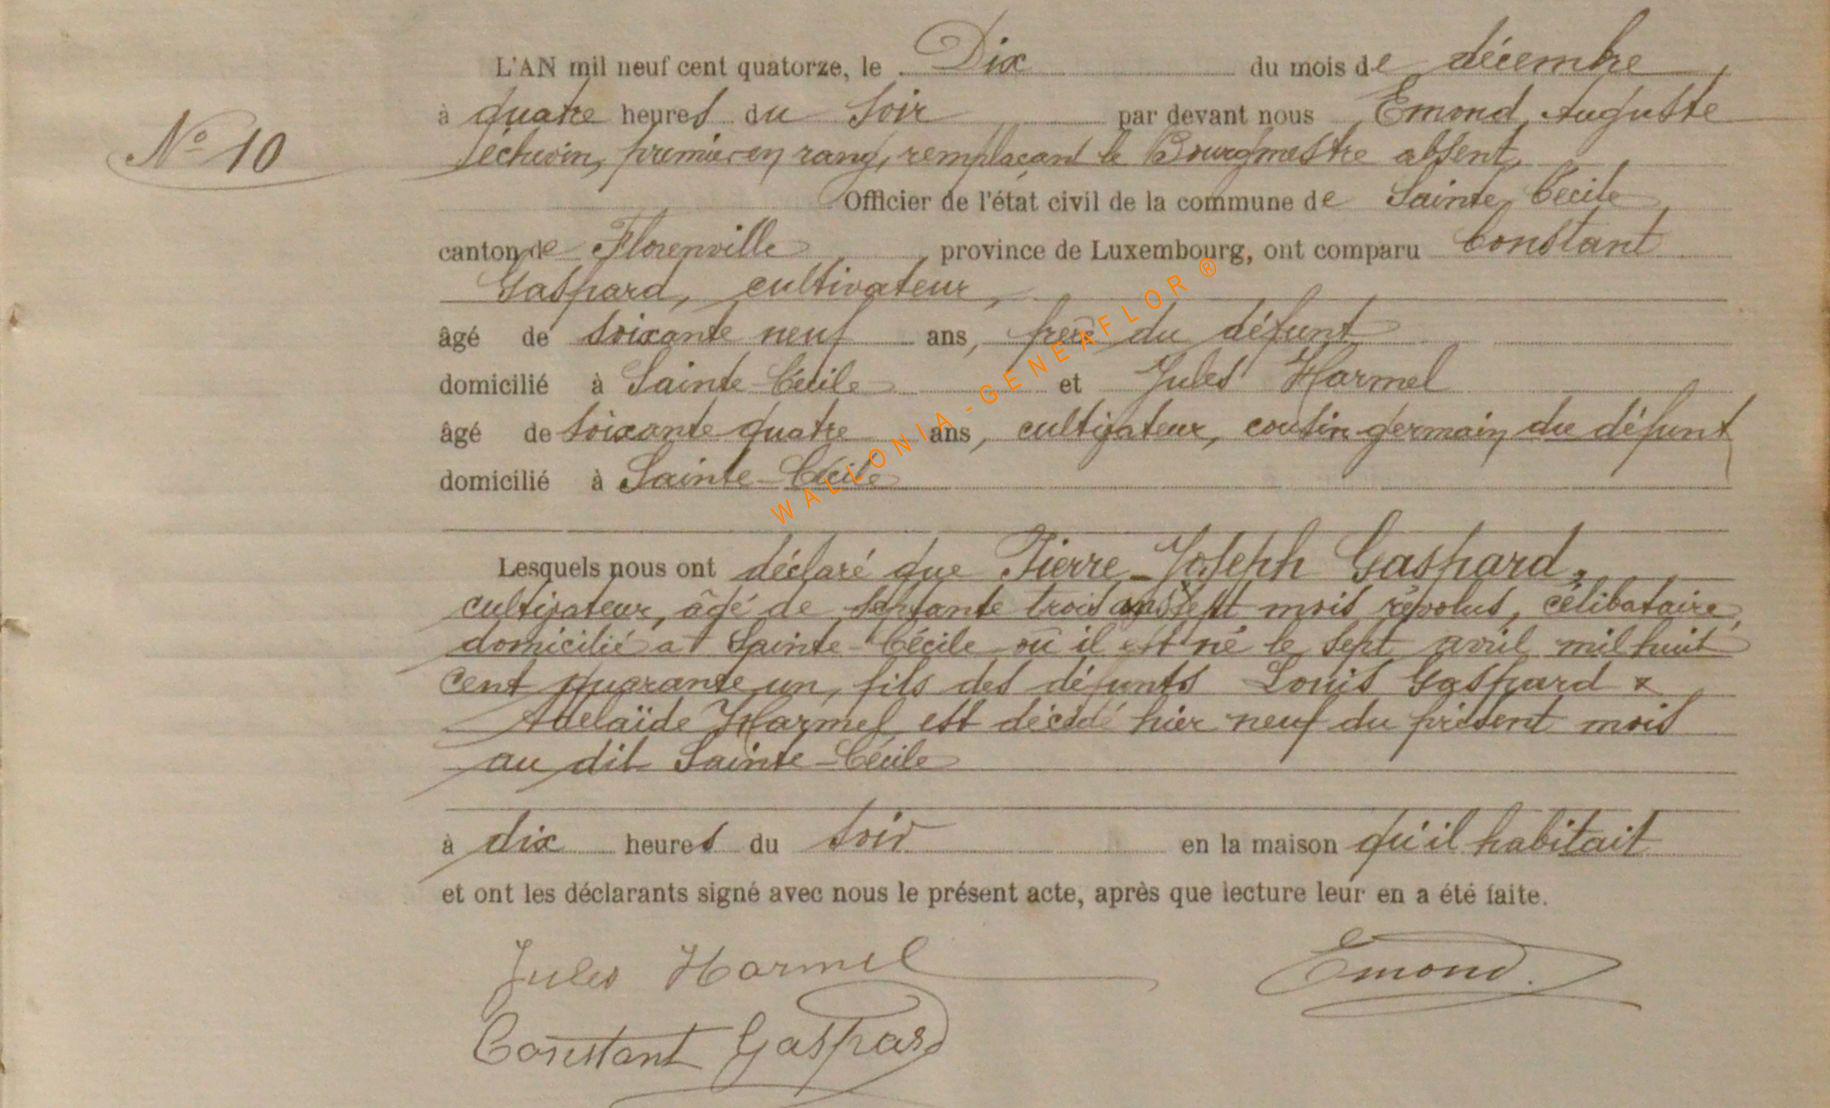 L'AN mil neuf cent quatorze, le Dix du mois de décembre
à quatre heures du soir par devant nous Emond, Auguste
N° 10
échevin, premier en rang, remplaçant le Bourgmestre absent,
Officier de l'état civil de la commune de Sainte Cécile
canton de Florenville, province de Luxembourg, ont comparu Constant
Gaspard, cultivateur,
âgé de soixante neuf ans, frère du défunt
domicilié à Sainte-Cécile et Jules Harmel
âgé de soixante quatre ans, cultivateur, cousin germain du défunt
domicilié à Sainte-Cécile
WALLONIA-GENEAFLOR®
Lesquels nous ont déclaré que Pierre-Joseph Gaspard,
cultivateur, âgé de septante trois ans sept mois révolus, célibataire,
domicilié à Sainte-Cécile où il est né le sept avril mil huit
cent quarante un, fils des défunts Louis Gaspard &
Adelaïde Harmel est décédé hier neuf du présent mois
au dit Sainte-Cécile
à dix heures du soir en la maison qu'il habitait
et ont les déclarants signé avec nous le présent acte, après que lecture leur en a été faite.
Jules Harmel Emond.
Constant Gaspard